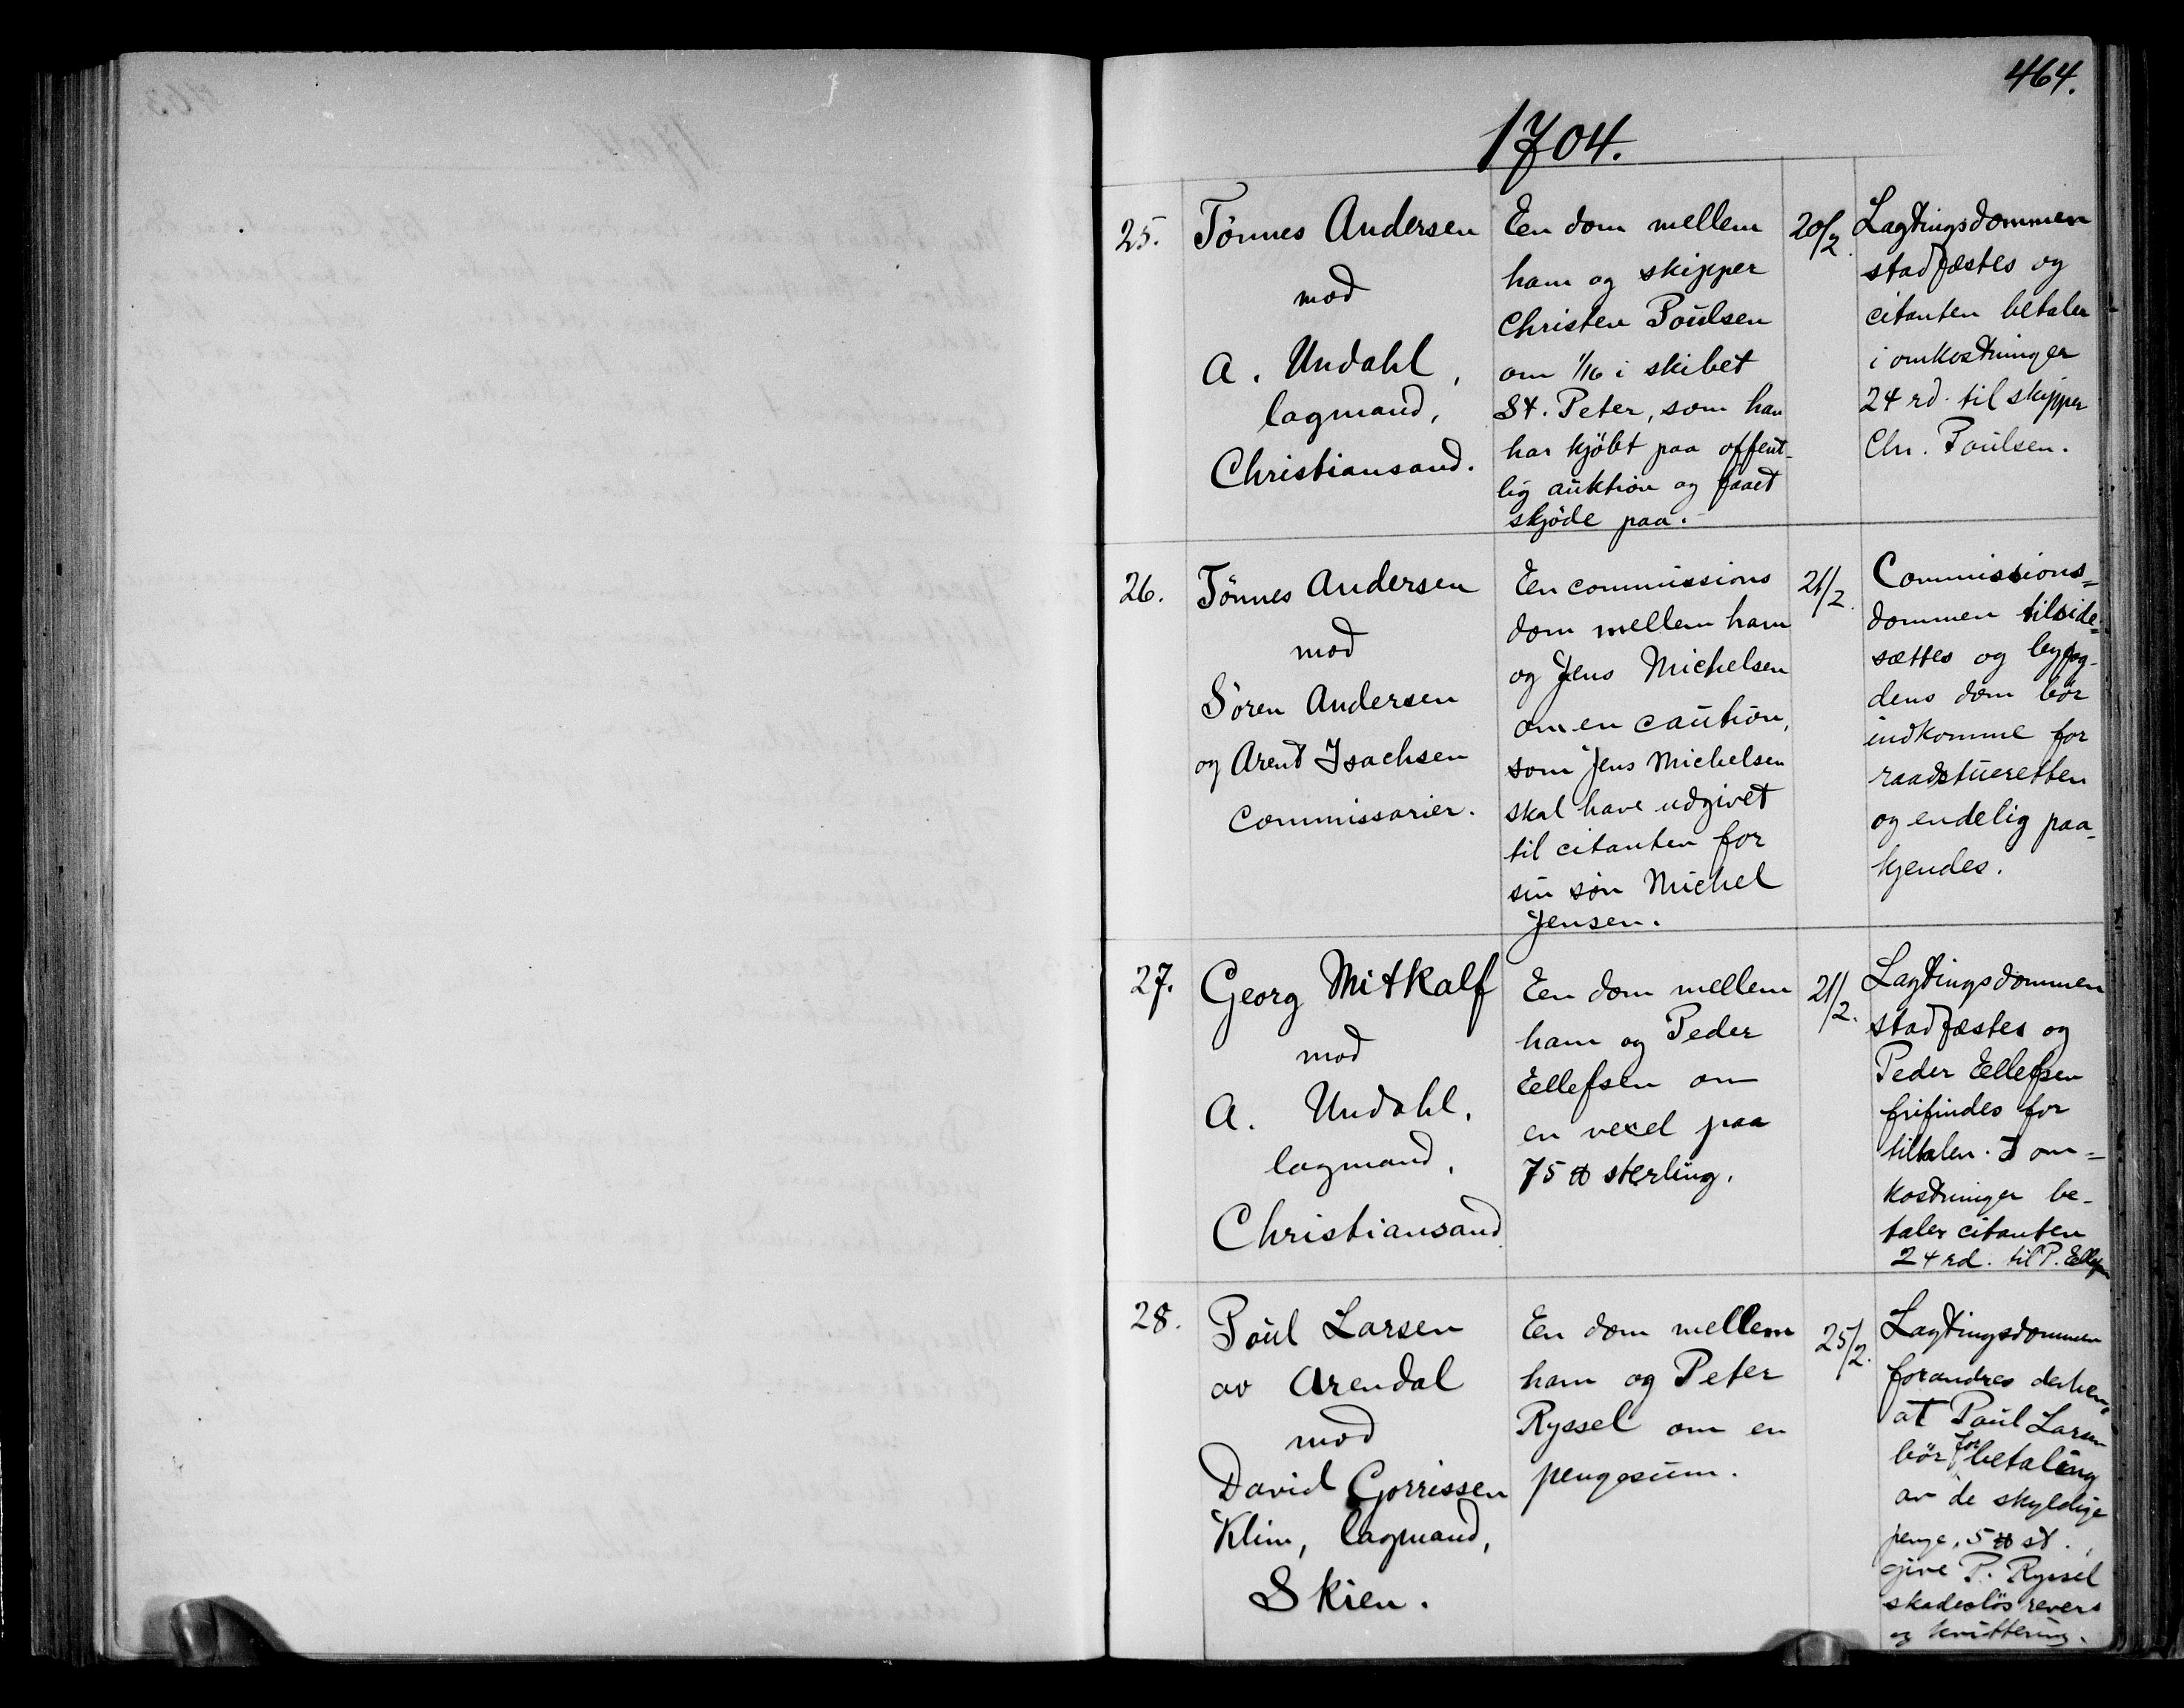 464.
1704.
25.
Tönnes Andersen
mod
A. Undahl,
lagmand,
Christiansand.
Een dom mellem
ham og skipper
Christen Poulsen
om 1/16 i skibet
St. Peter, som han
har kjöbt paa offent-
lig auktion og faaet
skjöde paa.
20/2.
Lagtingsdommen
stadfæstes og
citanten betaler
i omkostninger
24 rd. til skipper
Chr. Poulsen.
26.
Tönnes Andersen
mod
Sören Andersen
og Arent Isachsen
commissarier.
Een commissions
dom mellem ham
og Jens Michelsen
om en caution,
som Jens Michelsen
skal have udgivet
til citanten for
sin sön Michel
Jensen.
21/2.
Commissions=
dommen tilside=
sættes og byfog-
dens dom bör
indkomme for
raadstueretten
og endelig paa-
kjendes.
27.
Georg Mitkalf
mod
A. Undahl,
lagmand,
Christiansand.
Een dom mellem
ham og Peder
Eellefsen om
en vexel paa
75 ℔ sterling.
21/2.
Lagtingsdommen
stadfæstes og
Peder Eellefsen
frifindes for
tiltalen. I om=
kostninger be-
taler citanten
24 rd. til P. Ellefsen
28.
Poul Larsen
av Arendal
mod
David Gorrissen
Klim, lagmand,
Skien.
En dom mellem
ham og Peter
Ryssel om en
pengesum.
25/2.
Lagtingsdommen
forandres derhen,
at Poul Larsen
bör for betaling
av de skyldige
penge, 5 ℔ st.,
give P. Ryssel
skadeslös revers
og kvittering.